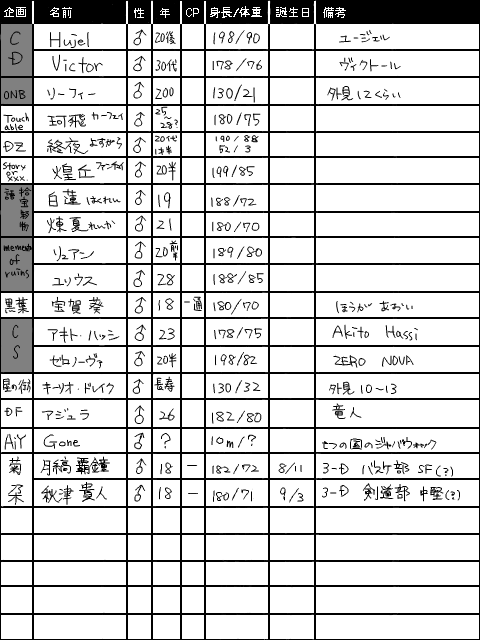 企画 名前 性 年 CP 身長/体重 誕生日 備考
CD Hujel ♂ 20後 198/90 ユージェル
Victor ♂ 30代 178/76 ヴィクトール
ONB リーフィー ♂ 200 130/21 外見12くらい
Touchable 珂飛 カーフェイ ♂ 25~28? 180/75
ĐZ 終夜 よすがら ♂ 20代 190/88
52/3
Story or xxx. 煌丘 ♂ 20半 199/85
白蓮 はくれん ♂ 19 188/72
煉夏 れんか ♂ 21 180/70
memento of ruins リュアン ♂ 20前半 189/80
ユリウス ♂ 28 188/85
黒葉 宝賀 葵 ♂ 18 一通 180/70 ほうが あおい
CS アキト・ハッシ ♂ 23 178/75 Akito Hassi
ゼロノーヴァ ♂ 20半 198/82 ZERO NOVA
星の街 キーリオ・ドレイク ♂ 長寿 130/32 外見10~13
ĐF アジュラ ♂ 26 182/80 竜人
AiY Gone ♂ ? 10m/? 七つの国のジャバウォック
菊 月縞 覇鐘 ♂ 18 一 182/72 8/11 3-Đ バスケ部 SF(?)
朶 秋津 貴人 ♂ 18 一 180/71 9/3 3-Đ 剣道部 中堅(?)